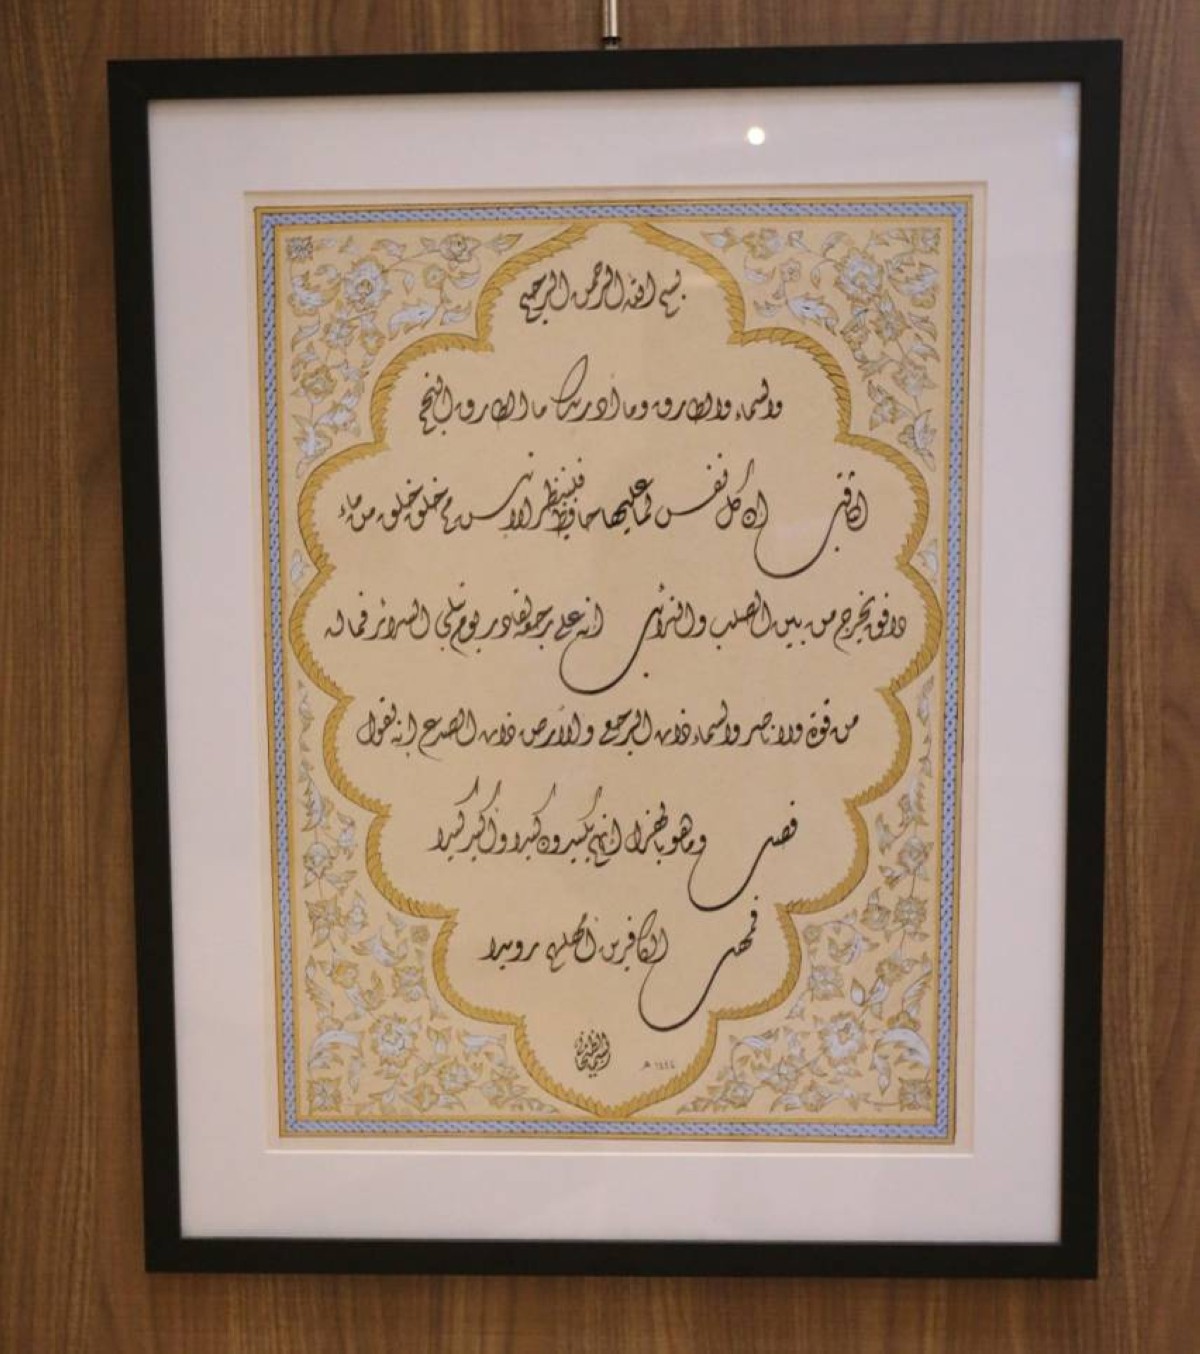 بسم الله الرحمن الرحيم
والسماء والطارق وما أدريك ما الطارق النجم
الثاقب ان كل نفس لما عليها حافظ فلينظر الانسن مم خلق خلق من ماء
دافق يخرج من بين الصلب والترائب انه على رجعه لقادر يوم تبلى السرائر فما له
من قوة ولا ناصر والسماء ذات الرجع والأرض ذات الصدع انه لقول
فصل وما هو بالهزل انهم يكيدون كيدا وأكيد كيدا
فمهل الكافرين أمهلهم رويدا
١٤٤٤ هـ